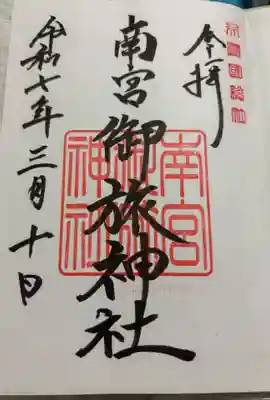 奉拝
南宮御旅神社
南宮
御旅
神社
令和七年三月十日